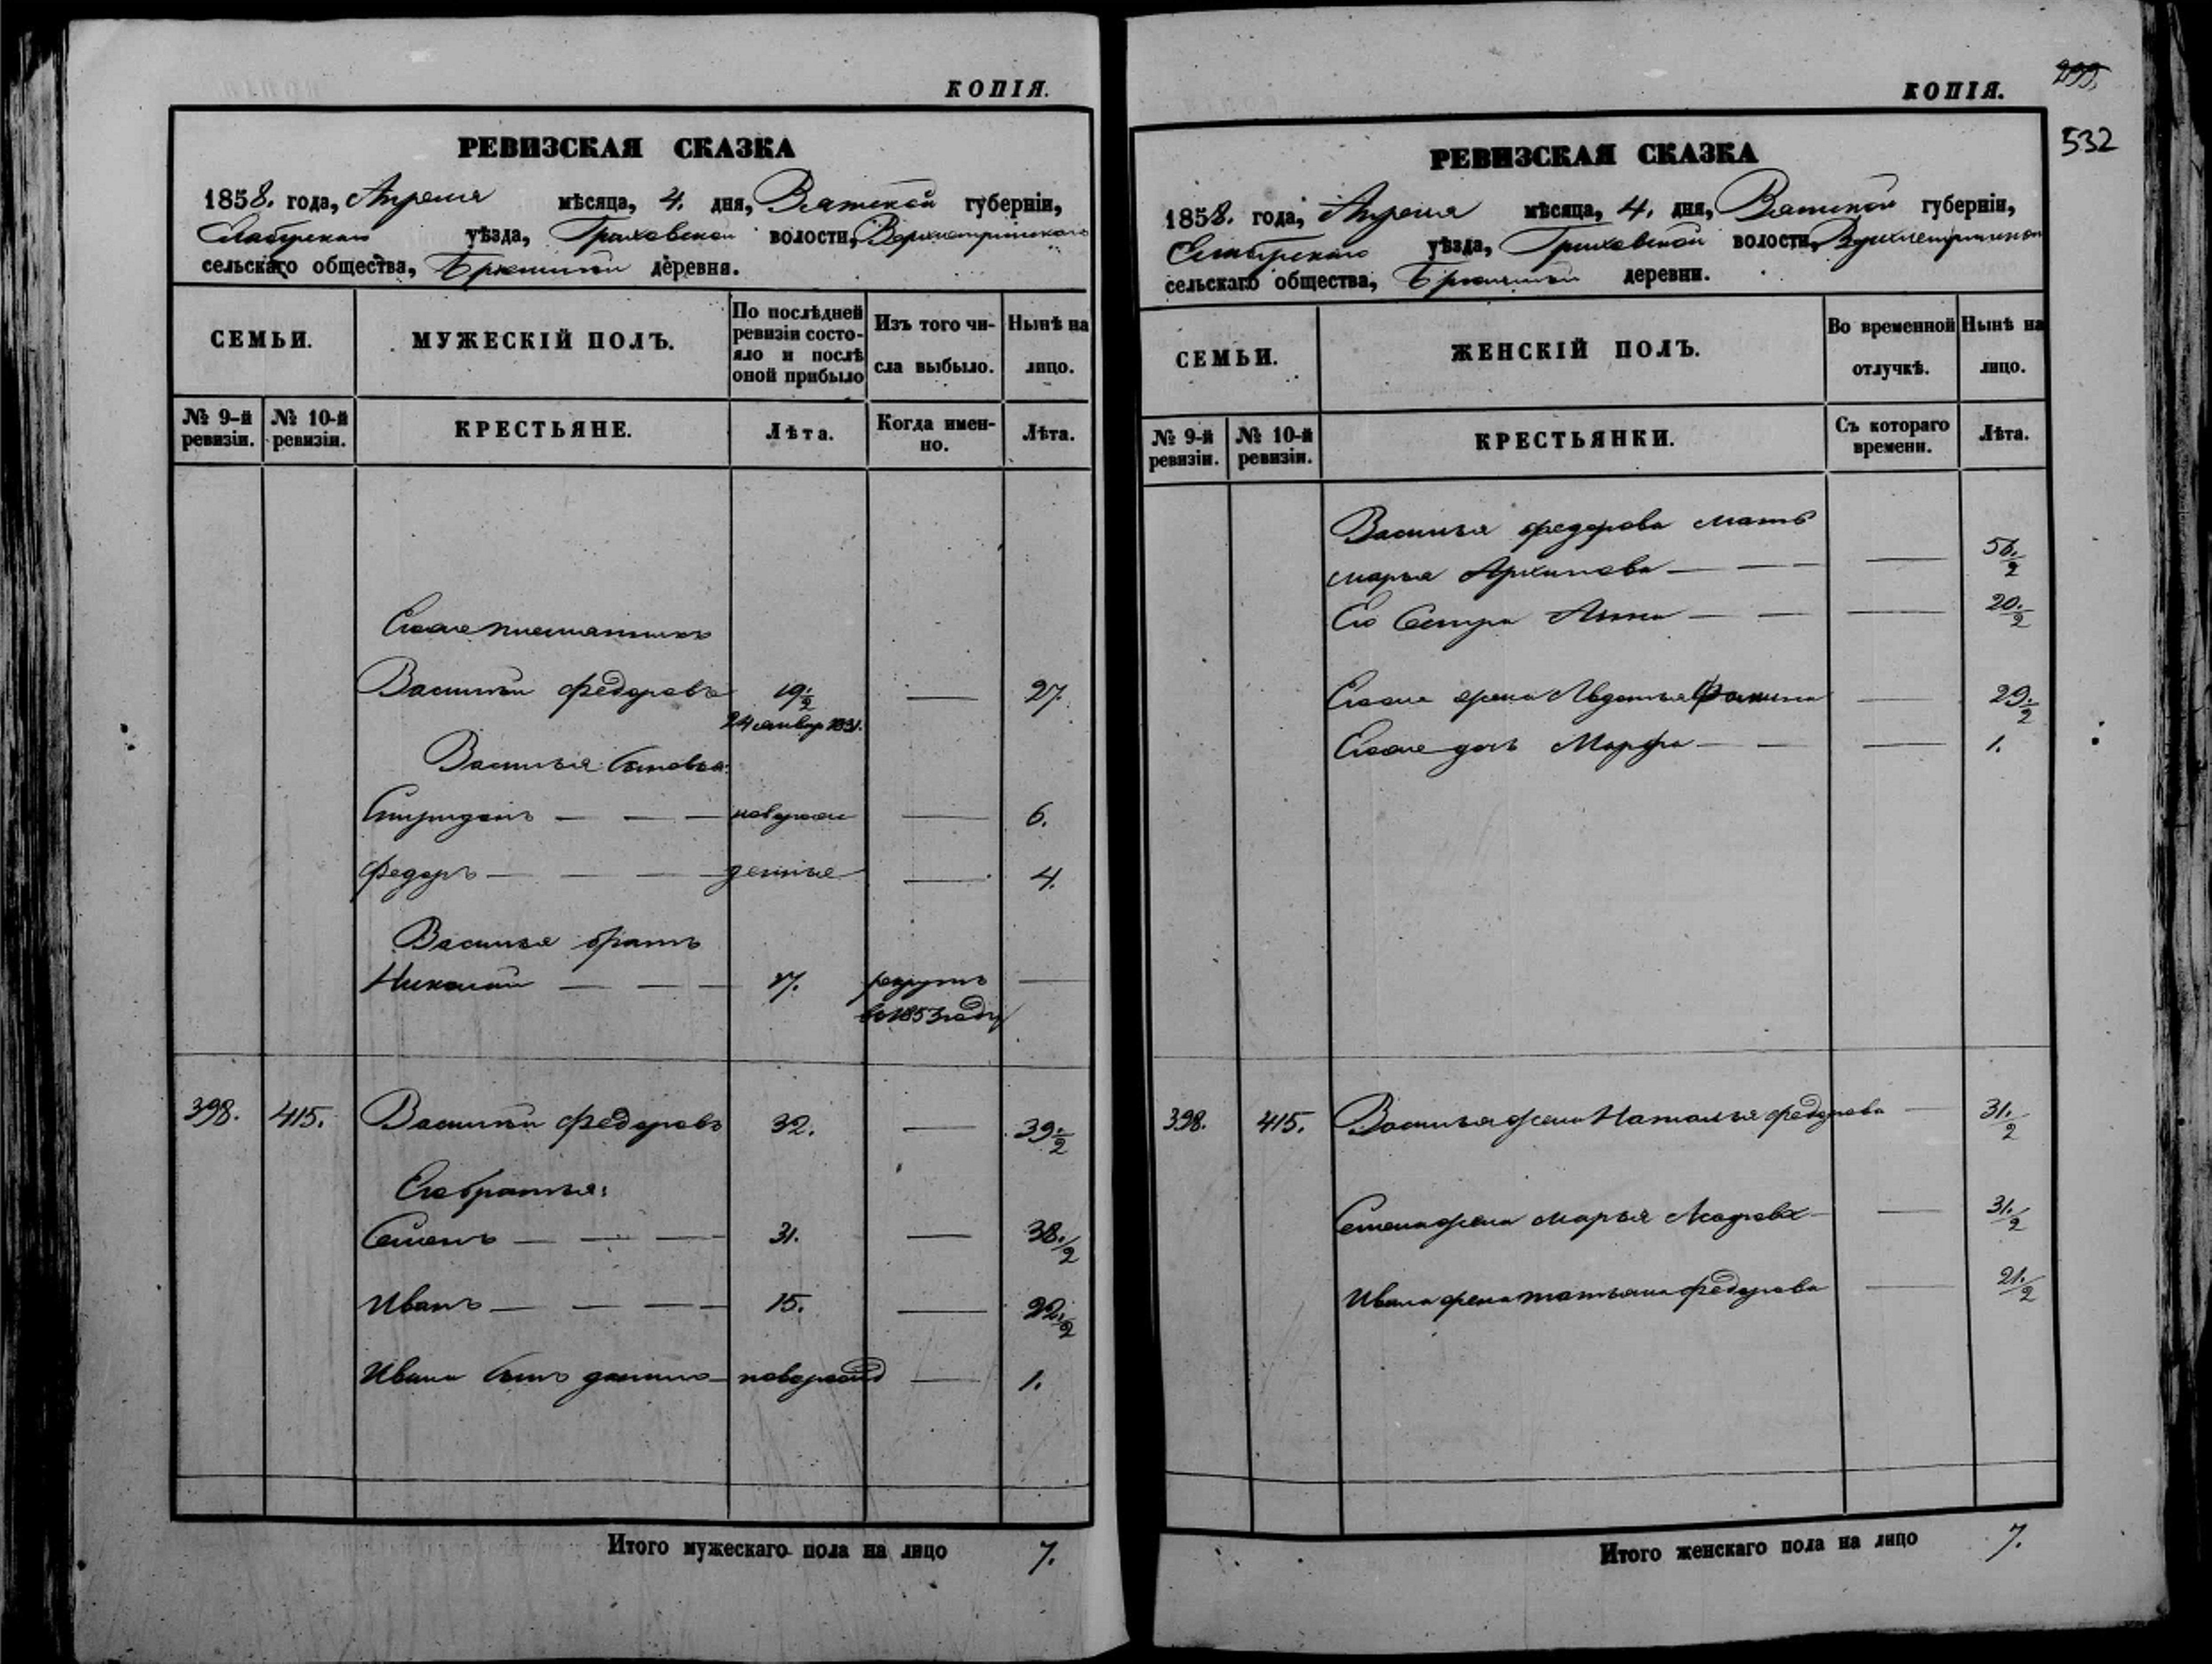 КОПІЯ.
РЕВИЗСКАЯ СКАЗКА
1858. года, Апреля мѣсяца, 4. дня, Вятской губерніи,
Елабугскаго уѣзда, Граховской волости,
сельскаго общества, деревня.
СЕМЬИ.
МУЖЕСКІЙ ПОЛЪ.
По послѣдней
ревизіи состо-
яло и послѣ
оной прибыло
Изъ того чи-
сла выбыло.
Нынѣ на
лицо.
№ 9-й
ревизіи.
№ 10-й
ревизіи.
КРЕСТЬЯНЕ.
Лѣта.
Когда имен-
но.
Лѣта.
Его племянникъ
Василій Федоровъ 19 1/2 — 27.
Василья сыновья:
Спиридонъ — — — новорож 6.
Федоръ — — — денные — 4.
Василья братъ
Николай — — — рекрутъ —
въ 1853 году
398. 415. Василій Федоровъ 32. — 39 1/2
Его братья:
Семенъ — — — 31. — 38 1/2
Иванъ — — — 15. — 22 1/2
Ивана сынъ — новорожд — 1.
Итого мужескаго пола на лицо 7.
КОПІЯ.
299.
532
РЕВИЗСКАЯ СКАЗКА
1858. года, Апреля мѣсяца, 4. дня, Вятской губерніи,
Елабугскаго уѣзда, Граховской волости,
сельскаго общества, деревни.
СЕМЬИ.
ЖЕНСКІЙ ПОЛЪ.
Во временной
отлучкѣ.
Нынѣ на
лицо.
№ 9-й
ревизіи.
№ 10-й
ревизіи.
КРЕСТЬЯНКИ.
Съ котораго
времени.
Лѣта.
Василья Федорова мать
Марья Архипова — — — 56 1/2
Его сестра Анна — — — 20 1/2
Его жена Авдотья — 29 1/2
Его дочь Марфа — — — 1.
398. 415. Василья жена Наталья Федорова — 31 1/2
Семена жена Марья — 31 1/2
Ивана жена Татьяна Федорова — 21 1/2
Итого женскаго пола на лицо 7.